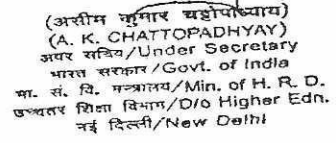 (असीम कुमार चट्टोपाध्याय)
(A. K. CHATTOPADHYAY)
अवर सचिव/Under Secretary
भारत सरकार/Govt. of India
मा. सं. वि. मन्त्रालय/Min. of H. R. D.
उच्चतर शिक्षा विभाग/D/o Higher Edn.
नई दिल्ली/New Delhi